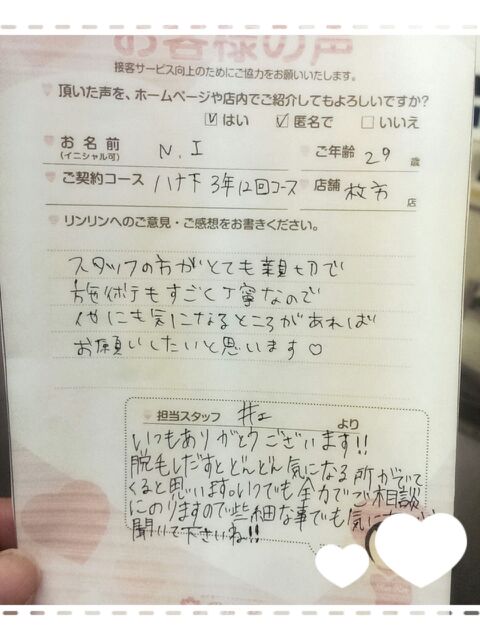 お客様の声
接客サービス向上のためにご協力をお願いいたします。
頂いた声を、ホームページや店内でご紹介してもよろしいですか?
はい 匿名で いいえ
お名前 N.I ご年齢 29 歳
(イニシャル可)
ご契約コース ハナ下 3年12回コース 店舗 枚方 店
リンリンへのご意見・ご感想をお書きください。
スタッフの方がとても親切で
施術もすごく丁寧なので
他にも気になるところがあれば
お願いしたいと思います♡
担当スタッフ 井上 より
いつもありがとうございます!!
脱毛しだすとどんどん気になる所がでて
くると思います。いつでも全力でご相談
にのりますので些細な事でも気に
聞いて下さいね!!